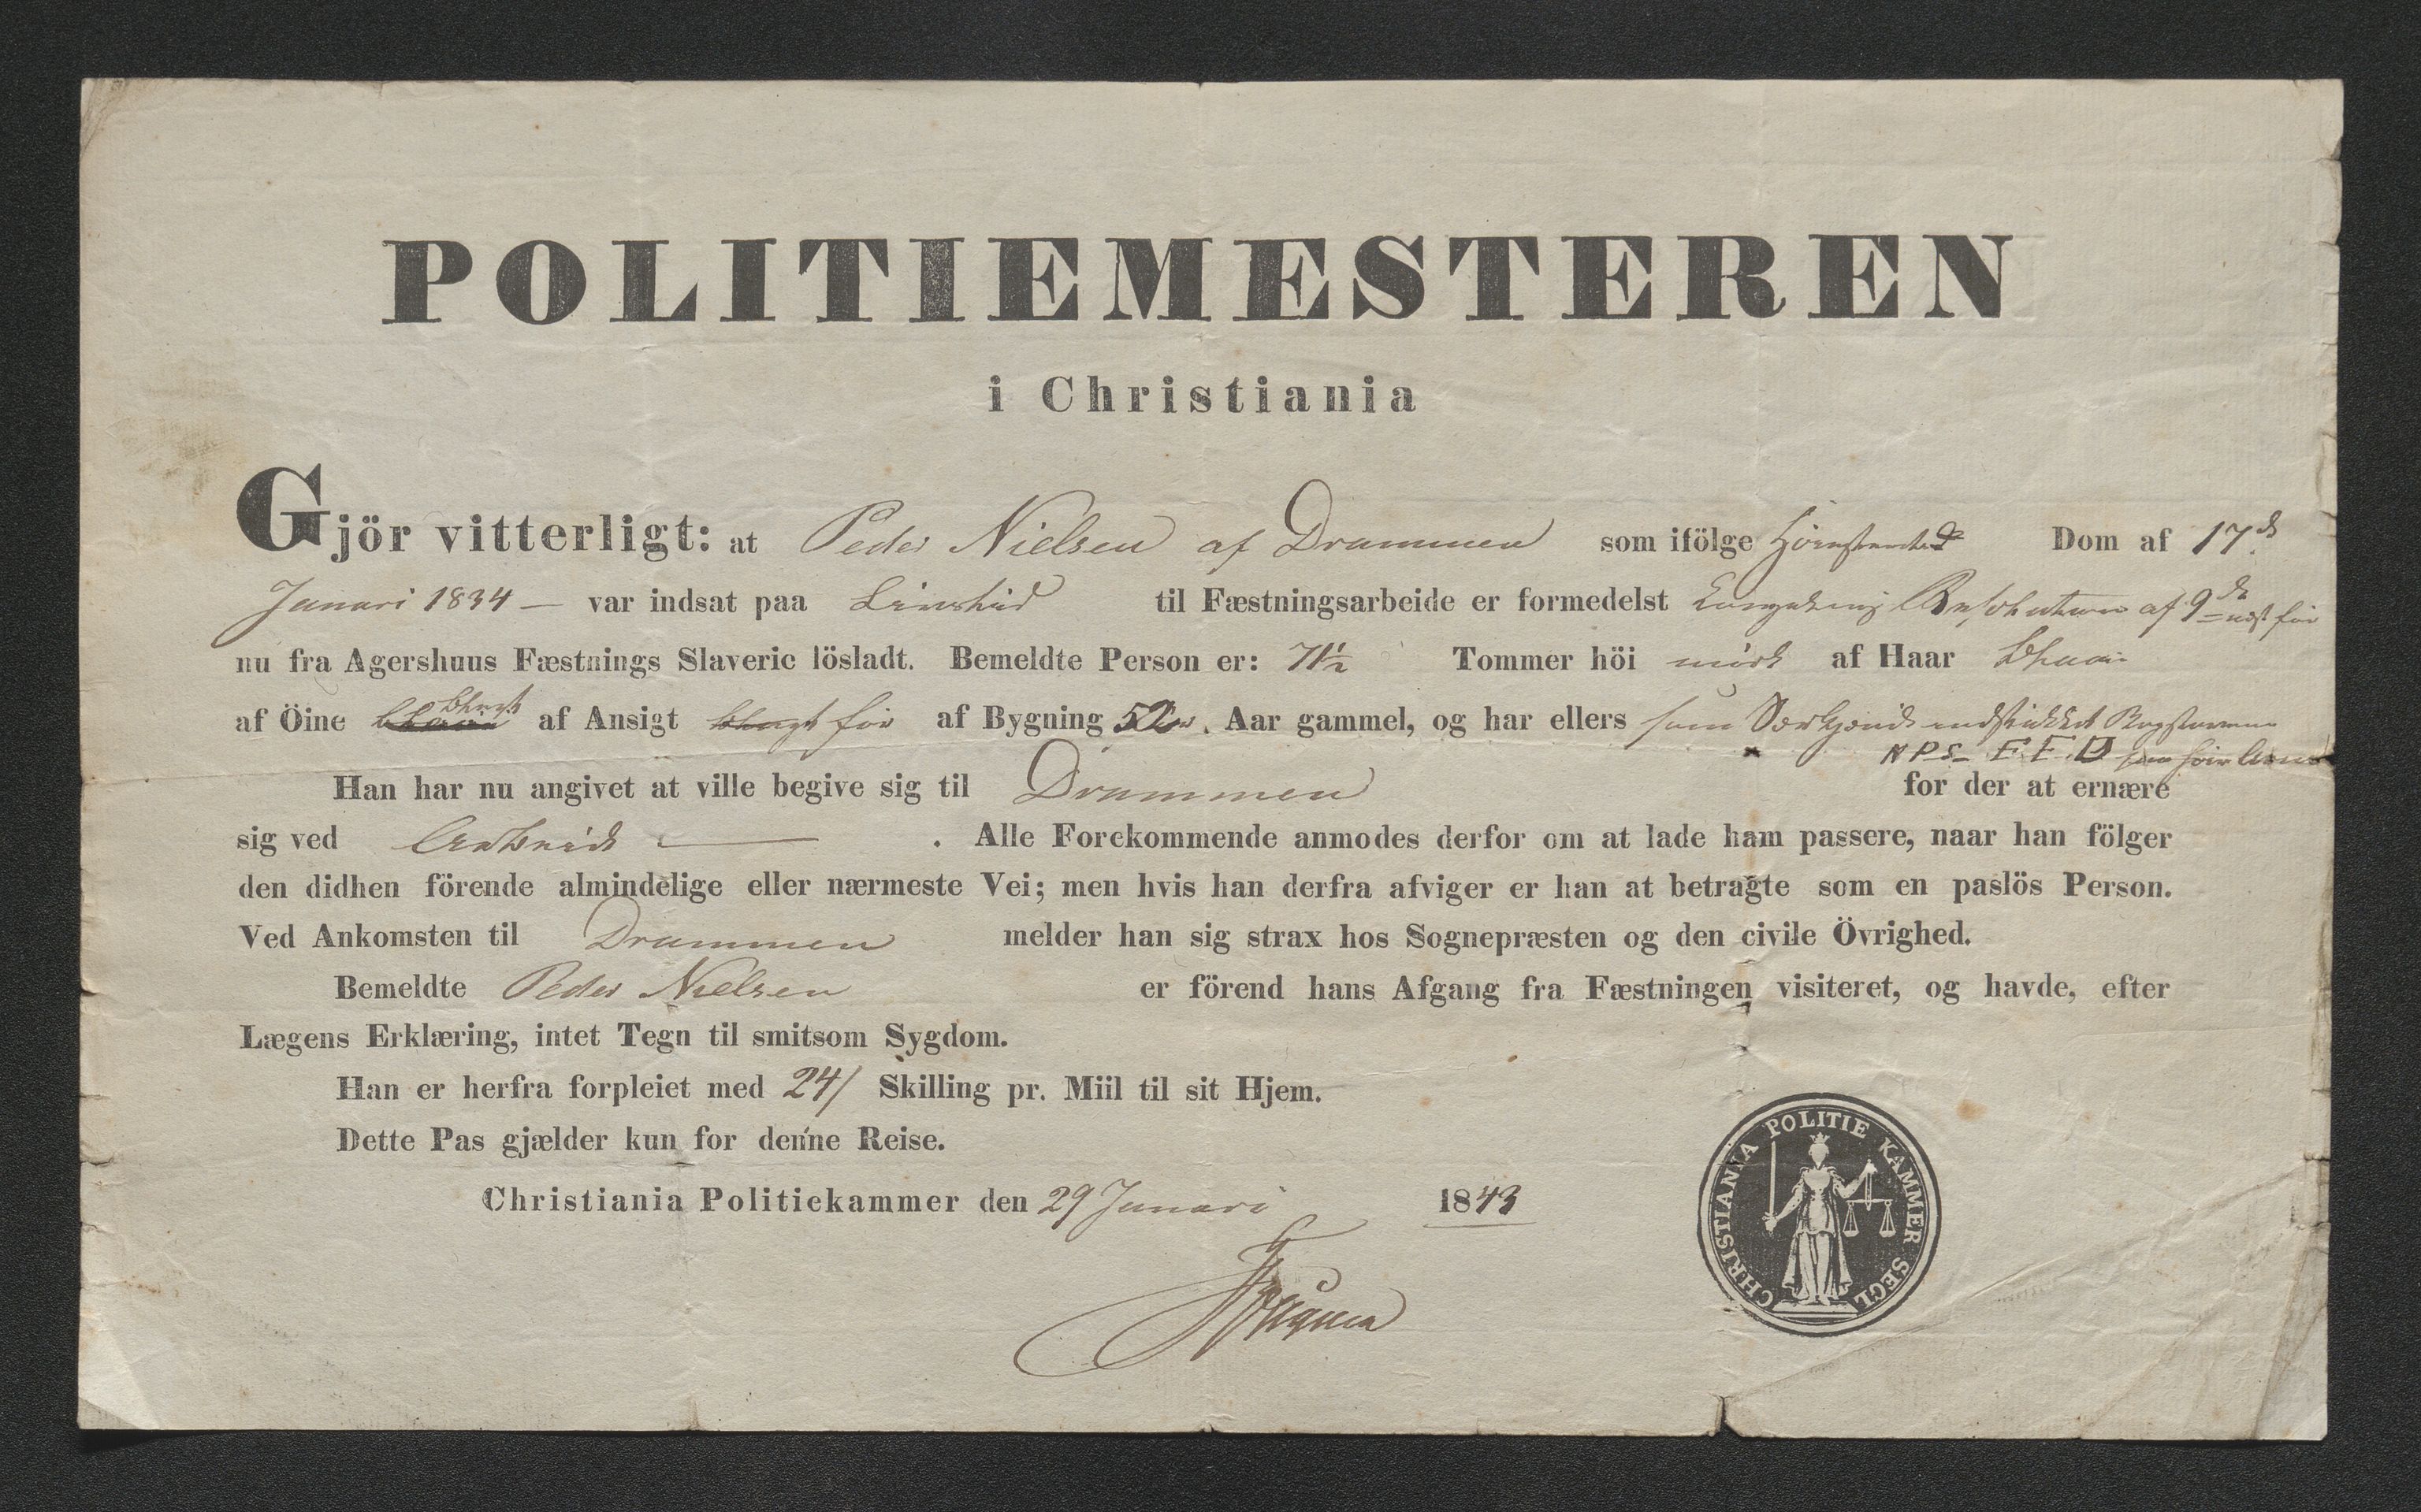 POLITIEMESTEREN
i Christiania
Gjör vitterligt: at Peder Nielsen af Drammen som ifölge Dom af 17d
Januari 1834 — var indsat paa Livstid til Fæstningsarbeide er formedelst Resolution af 9de
nu fra Agershuus Fæstnings Slaverie lösladt. Bemeldte Person er: 71½ Tommer höi mörk af Haar blaa
af Öine blegt af Ansigt för af Bygning 52 Aar gammel, og har ellers som Særkjende indstukket Bogstaverne
NPS EED
Han har nu angivet at ville begive sig til Drammen for der at ernære
sig ved Arbeide — . Alle Forekommende anmodes derfor om at lade ham passere, naar han fölger
den didhen förende almindelige eller nærmeste Vei; men hvis han derfra afviger er han at betragte som en paslös Person.
Ved Ankomsten til Drammen melder han sig strax hos Sognepræsten og den civile Övrighed.
Bemeldte Peder Nielsen er förend hans Afgang fra Fæstningen visiteret, og havde, efter
Lægens Erklæring, intet Tegn til smitsom Sygdom.
Han er herfra forpleiet med 24/ Skilling pr. Miil til sit Hjem.
Dette Pas gjælder kun for denne Reise.
Christiania Politiekammer den 29 Januari 1843
CHRISTIANIA POLITIE KAMMER SEGL